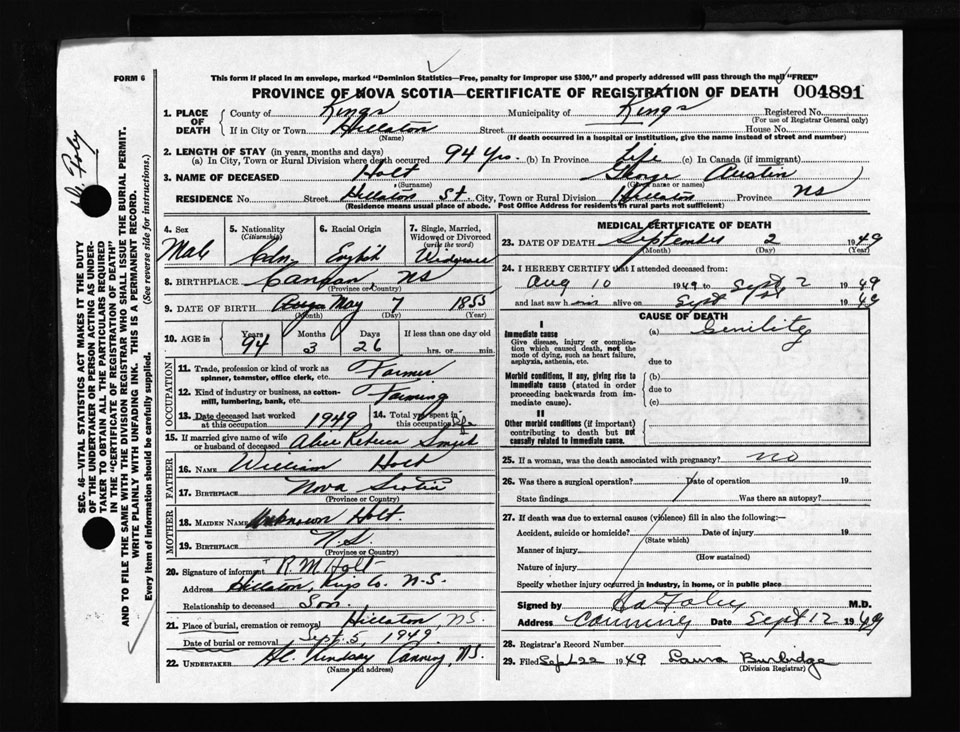 FORM 6
This form if placed in an envelope, marked "Dominion Statistics—Free, penalty for improper use $300," and properly addressed will pass through the mail "FREE"
PROVINCE OF NOVA SCOTIA—CERTIFICATE OF REGISTRATION OF DEATH 004891
1. PLACE OF DEATH
County of Kings Municipality of Kings Registered No.
(For use of Registrar General only)
If in City or Town Hillaton Street House No.
(Name) (If death occurred in a hospital or institution, give the name instead of street and number)
2. LENGTH OF STAY (in years, months and days)
(a) In City, Town or Rural Division where death occurred 94 yrs. (b) In Province Life (c) In Canada (if immigrant)
3. NAME OF DECEASED Holt George Austin
(Surname) (Given name or names)
RESIDENCE No. Street Hillaton St. City, Town or Rural Division Hillaton Province NS
(Residence means usual place of abode. Post Office Address for residents in rural parts not sufficient)
4. Sex
Male
5. Nationality
(Citizenship)
Cdn
6. Racial Origin
English
7. Single, Married, Widowed or Divorced
(write the word)
Widower
8. BIRTHPLACE NS
(Province or Country)
9. DATE OF BIRTH May 7 1855
(Month) (Day) (Year)
10. AGE in
Years 94
Months 3
Days 26
If less than one day old
hrs. or min.
OCCUPATION
11. Trade, profession or kind of work as
spinner, teamster, office clerk, etc. Farmer
12. Kind of industry or business, as cotton-
mill, lumbering, bank, etc. Farming
13. Date deceased last worked
at this occupation 1949
14. Total yrs. spent
in this occupation Life
15. If married give name of wife
or husband of deceased Alice Rebecca
FATHER
16. NAME William Holt
17. BIRTHPLACE Nova Scotia
(Province or Country)
MOTHER
18. MAIDEN NAME Unknown Holt.
19. BIRTHPLACE N.S.
(Province or Country)
20. Signature of informant R. M. Holt
Address Hillaton, Kings Co. N.S.
Relationship to deceased Son.
21. Place of burial, cremation or removal Hillaton, NS.
Date of burial or removal Sept. 5 1949.
22. UNDERTAKER Lindsay Canning, NS.
(Name and address)
MEDICAL CERTIFICATE OF DEATH
23. DATE OF DEATH September 2 1949
(Month) (Day) (Year)
24. I HEREBY CERTIFY that I attended deceased from:
Aug 10 1949 to Sept 2 1949
and last saw him alive on Sept 1st 1949
CAUSE OF DEATH
I
Immediate cause
Give disease, injury or complication which caused death, not the mode of dying, such as heart failure, asphyxia, asthenia, etc.
(a) Senility
due to
Morbid conditions, if any, giving rise to immediate cause (stated in order proceeding backwards from immediate cause).
(b)
due to
(c)
II
Other morbid conditions (if important) contributing to death but not causally related to immediate cause.
25. If a woman, was the death associated with pregnancy? no
26. Was there a surgical operation? Date of operation 19
State findings Was there an autopsy?
27. If death was due to external causes (violence) fill in also the following:—
Accident, suicide or homicide? Date of injury 19
(State which)
Manner of injury
(How sustained)
Nature of injury
Specify whether injury occurred in industry, in home, or in public place
Signed by Foley M.D.
Address Canning Date Sept 12 1949
28. Registrar's Record Number
29. Filed Sept 22 1949 Laura Burbidge
(Division Registrar)
Foley
SEC. 46—VITAL STATISTICS ACT MAKES IT THE DUTY
OF THE UNDERTAKER OR PERSON ACTING AS UNDER-
TAKER TO OBTAIN ALL THE PARTICULARS REQUIRED
IN THE "CERTIFICATE OF REGISTRATION OF DEATH"
AND TO FILE THE SAME WITH THE DIVISION REGISTRAR WHO SHALL ISSUE THE BURIAL PERMIT.
WRITE PLAINLY WITH UNFADING INK. THIS IS A PERMANENT RECORD.
Every item of information should be carefully supplied. (See reverse side for instructions.)